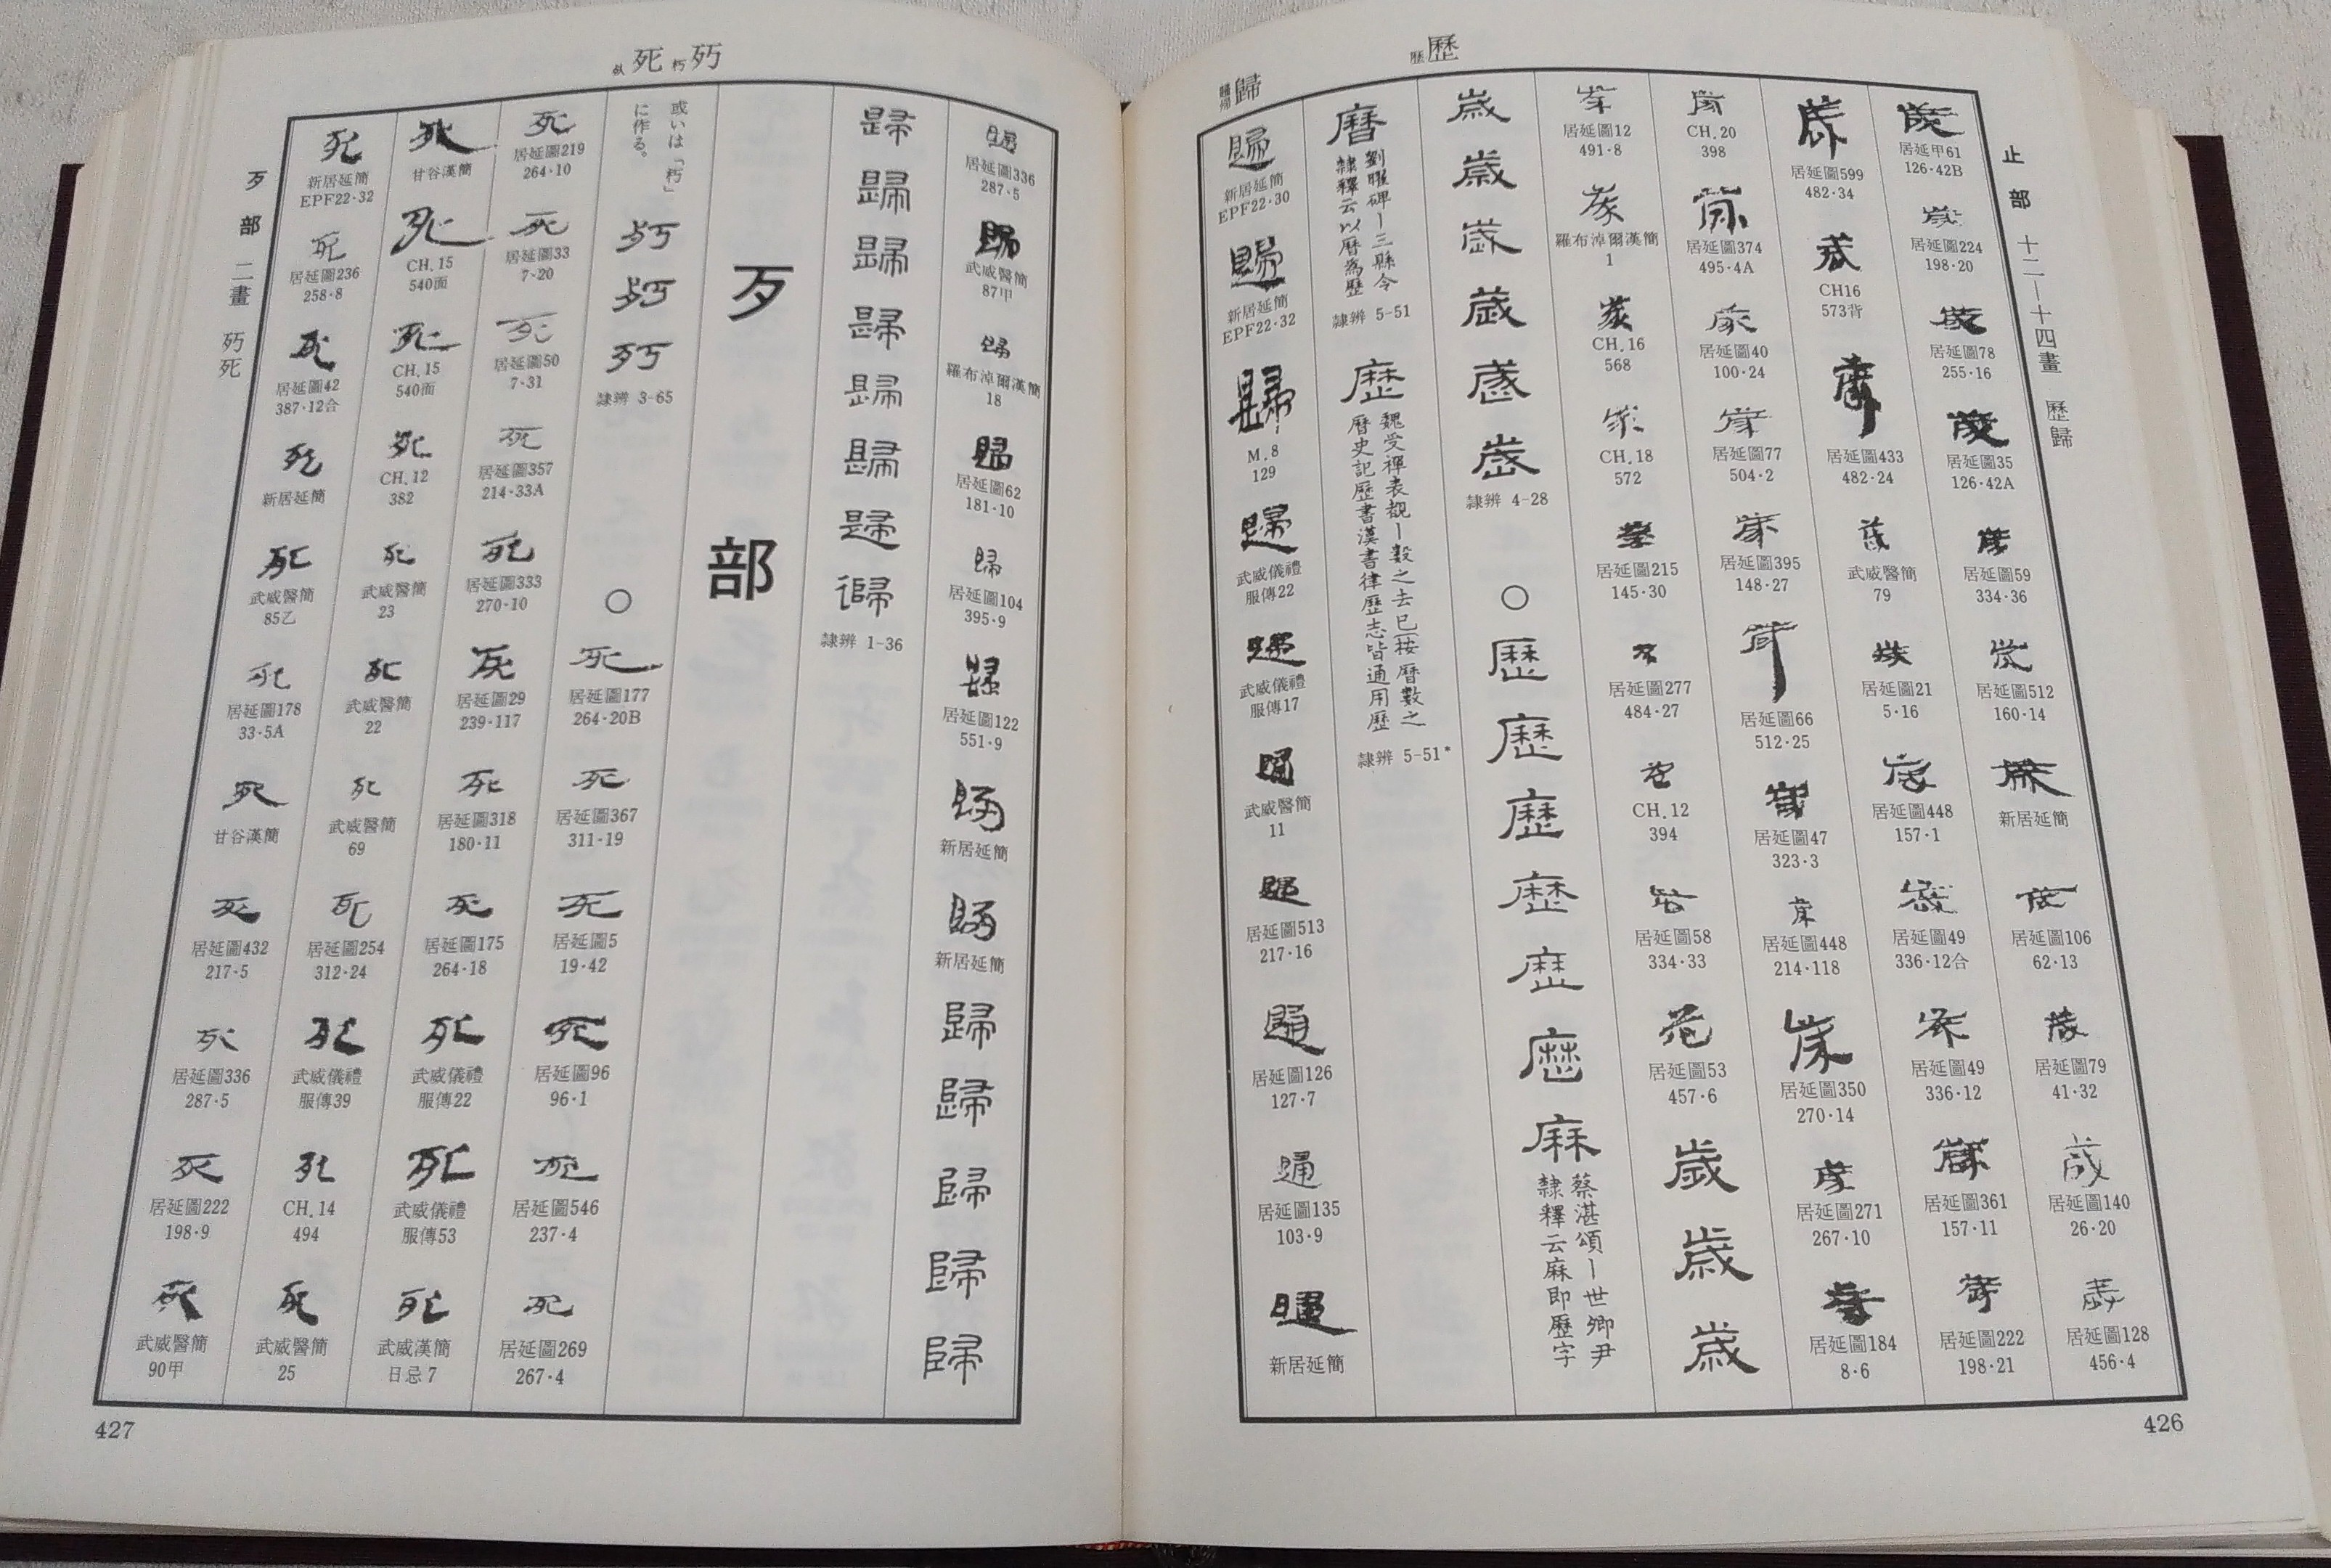 歷
歴
歸
歸
帰
止部 十二—十四畫 歷歸
居延甲61
126·42B
居延圖224
198·20
居延圖78
255·16
居延圖35
126·42A
居延圖59
334·36
居延圖512
160·14
新居延簡
居延圖106
62·13
居延圖79
41·32
居延圖140
26·20
居延圖128
456·4
居延圖599
482·34
CH16
573背
居延圖433
482·24
武威醫簡
79
居延圖21
5·16
居延圖448
157·1
居延圖49
336·12合
居延圖49
336·12
居延圖361
157·11
居延圖222
198·21
CH.20
398
居延圖374
495·4A
居延圖40
100·24
居延圖77
504·2
居延圖395
148·27
居延圖66
512·25
居延圖47
323·3
居延圖448
214·118
居延圖350
270·14
居延圖271
267·10
居延圖184
8·6
居延圖12
491·8
羅布淖爾漢簡
1
CH.16
568
CH.18
572
居延圖215
145·30
居延圖277
484·27
CH.12
394
居延圖58
334·33
居延圖53
457·6
歲
歲
歲
歲
歲
歲
歲
歲
歲
隸辨 4-28
○
歷
歷
歷
歷
歷
歷
麻
蔡湛頌—世卿尹
隸釋云麻即歷字
曆
劉曜碑—三縣令
隸釋云以曆為歷
隸辨 5-51
歷
魏受禪表覩—數之去已按曆數之
曆史記歷書漢書律歷志皆通用歷
隸辨 5-51*
歸
新居延簡
EPF22·30
歸
新居延簡
EPF22·32
歸
M.8
129
歸
武威儀禮
服傳22
武威儀禮
服傳17
武威醫簡
11
居延圖513
217·16
居延圖126
127·7
居延圖135
103·9
新居延簡
426
歹
朽
死
歹部 二畫 死
居延圖336
287·5
武威醫簡
87甲
羅布淖爾漢簡
18
居延圖62
181·10
居延圖104
395·9
居延圖122
551·9
新居延簡
新居延簡
歸
歸
歸
歸
歸
歸
歸
歸
歸
歸
歸
歸
歸
隸辨 1-36
歹部
或いは「朽」
に作る。
隸辨 3-65
○
死
居延圖177
264·20B
死
居延圖367
311·19
死
居延圖5
19·42
死
居延圖96
96·1
死
居延圖546
237·4
死
居延圖269
267·4
死
居延圖219
264·10
死
居延圖33
7·20
死
居延圖50
7·31
死
居延圖357
214·33A
死
居延圖333
270·10
死
居延圖29
239·117
死
居延圖318
180·11
死
居延圖175
264·18
死
武威儀禮
服傳22
死
武威儀禮
服傳53
死
武威漢簡
日忌7
死
甘谷漢簡
死
CH.15
540面
死
CH.15
540面
死
CH.12
382
死
武威醫簡
23
死
武威醫簡
22
死
武威醫簡
69
死
居延圖254
312·24
死
武威儀禮
服傳39
死
CH.14
494
死
武威醫簡
25
死
新居延簡
EPF22·32
死
居延圖236
258·8
死
居延圖42
387·12合
死
新居延簡
死
武威醫簡
85乙
死
居延圖178
33·5A
死
甘谷漢簡
死
居延圖432
217·5
死
居延圖336
287·5
死
居延圖222
198·9
死
武威醫簡
90甲
427